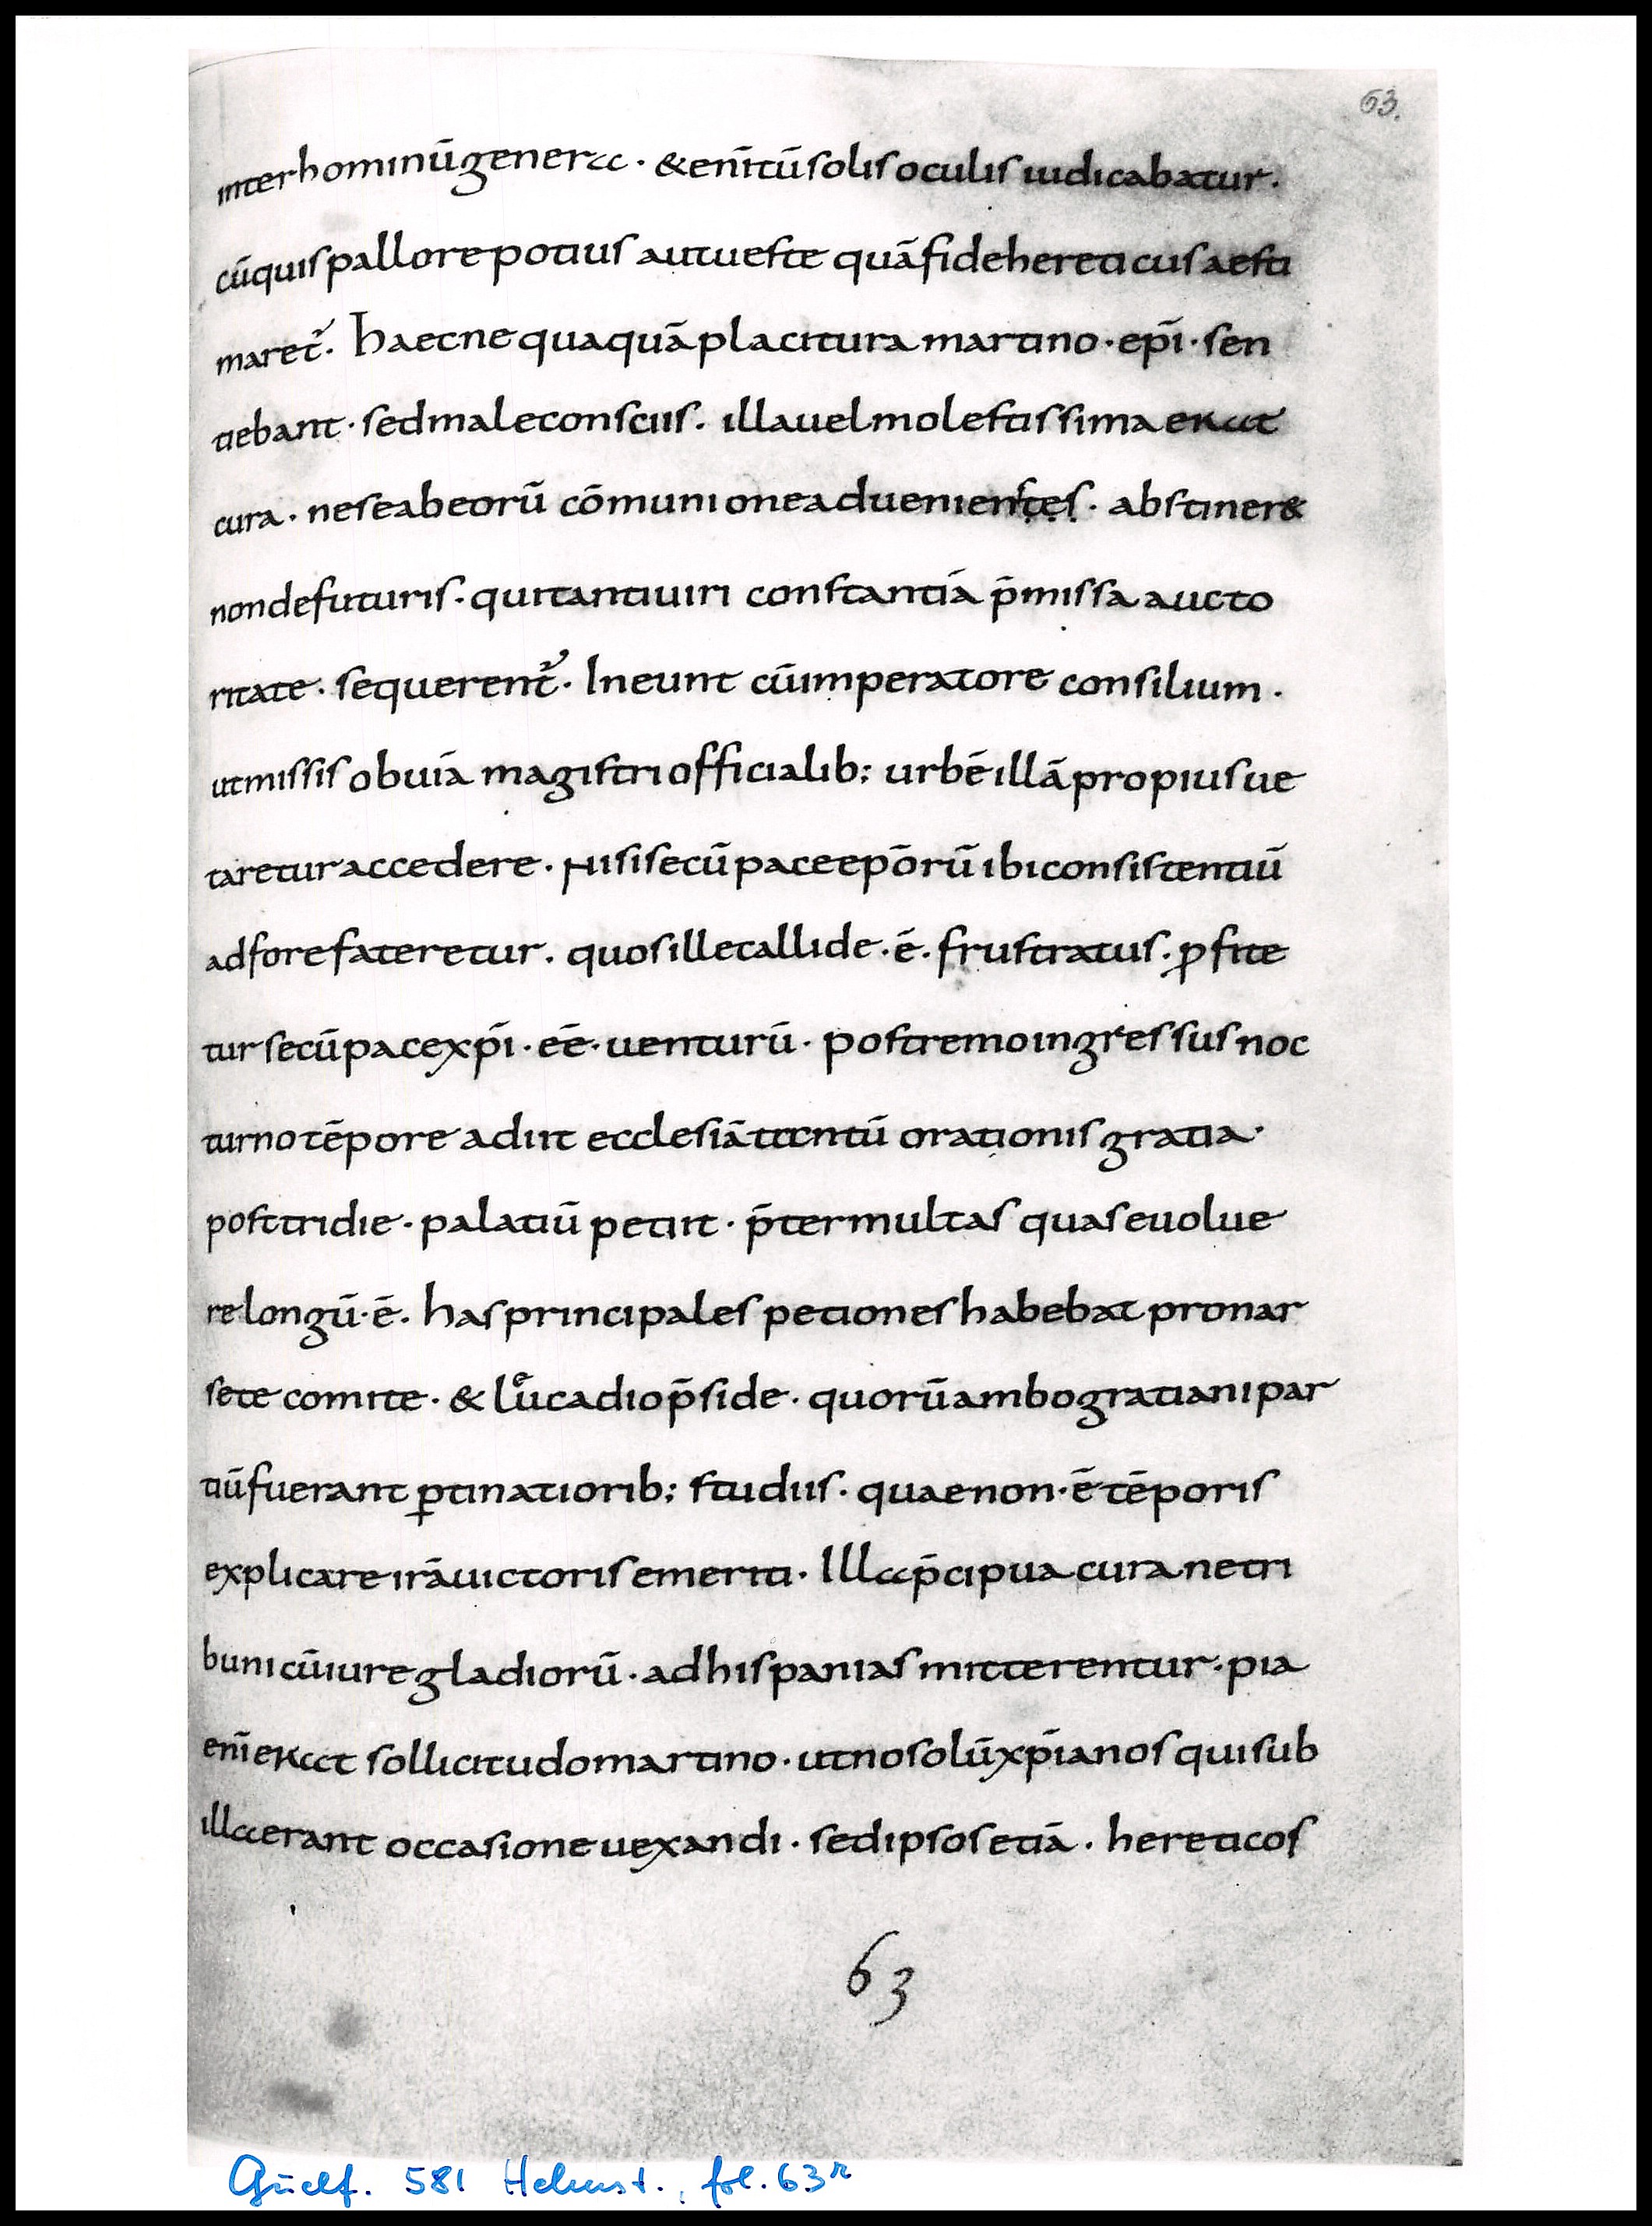 63.
inter hominū genera · & eni̅ tū solis oculis iudicabatur .
cū quis pallore potius aut ueste quā fide hereticus aesti
maret᷑ . haec nequaquā placitura martino · ep̄i · sen
tiebant · sed male consciis . illa uel molestissima erat
cura . ne se ab eorū cōmunione aduenientes . abstiner&
non defuturis . qui tanti uiri constantiā p̄missa aucto
ritate . sequerent᷑ . Ineunt cū imperatore consilium .
ut missis obuiā magistri officialib; urbē illā propius ue
taretur accedere . Nisi se cū pace ep̄orū ibi consistentiū
adfore fateretur . quos ille callide . ē . frustratus . ꝓfite
tur se cū pace xp̄i . eē . uenturū . postremo ingressus noc
turno tēpore adiit ecclesiā tantū orationis gratia .
posttridie . palatiū petiit . p̄ter multas quas euolue
re longū . ē . has principales petiones habebat pro nar
sete comite . & leucadio p̄side . quorū ambo gratiani par
tiū fuerant ꝑtinatiorib; studiis . quae non . ē tēporis
explicare irā uictoris emeriti . Illa p̄cipua cura ne tri
buni cū iure gladiorū . ad hispanias mitterentur . pia
eni̅ erat sollicitudo martino . ut no solū xp̄ianos qui sub
illa erant occasione uexandi . sed ipsos etiā . hereticos
63
Guelf. 581 Helmst., fol. 63r